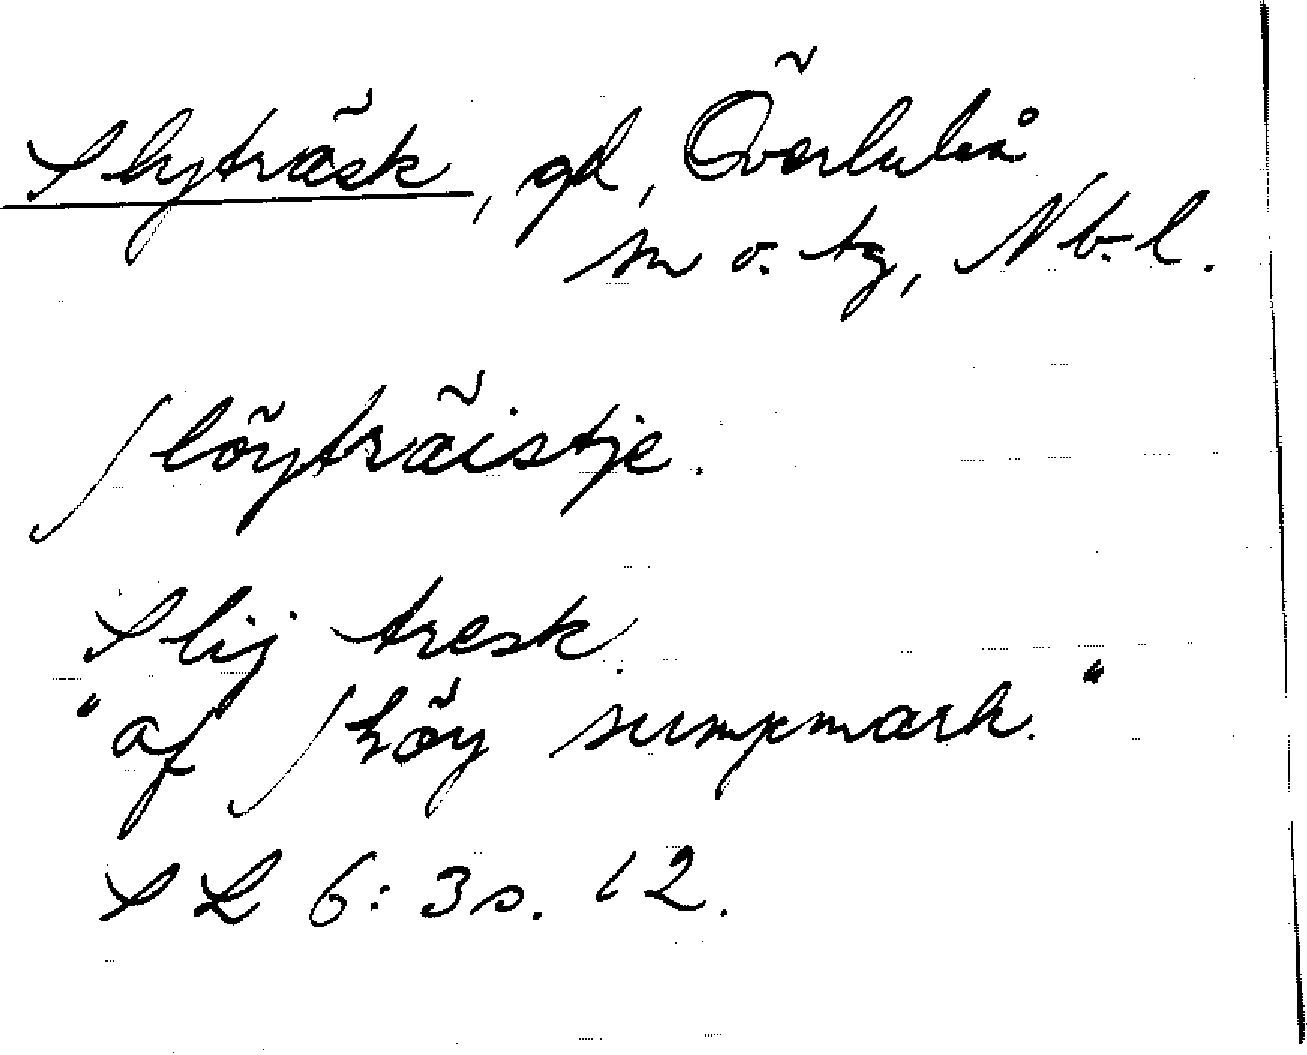 Slyträsk, gd, Överluleå
sn o. tg, Nb. l.
ʃlöyträistje.
Slij tresk.
"af ʃlöy sumpmark."
SL 6:3 s. 12.